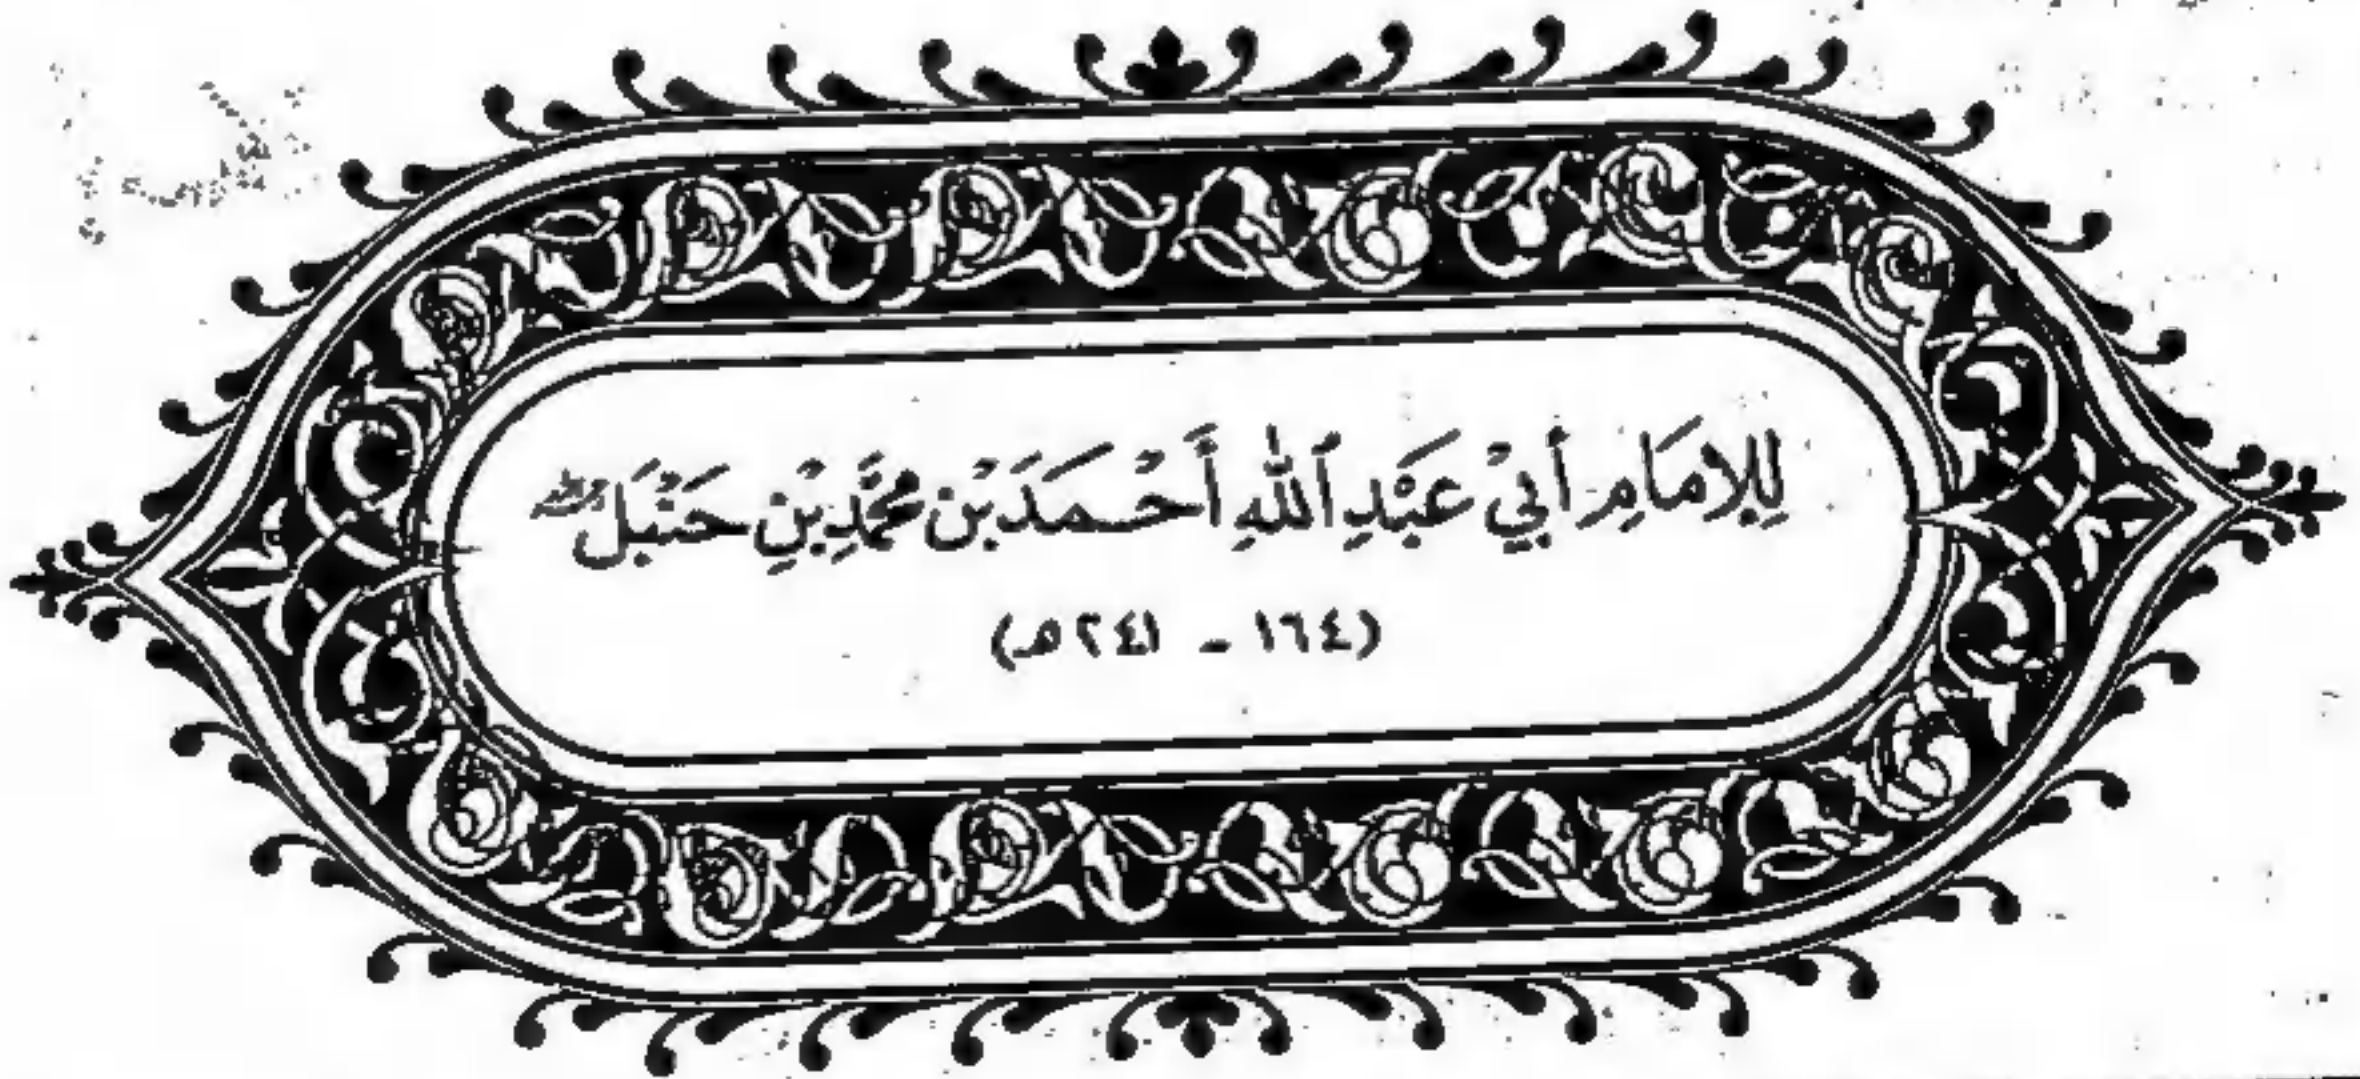 لِلإمَامِ أَبِيْ عَبْدِ ٱللهِ أَحْمَدَ بْن مُحَمَّدِ بْنِ حَنْبَلَ
(١٦٤ - ٢٤١ هـ)